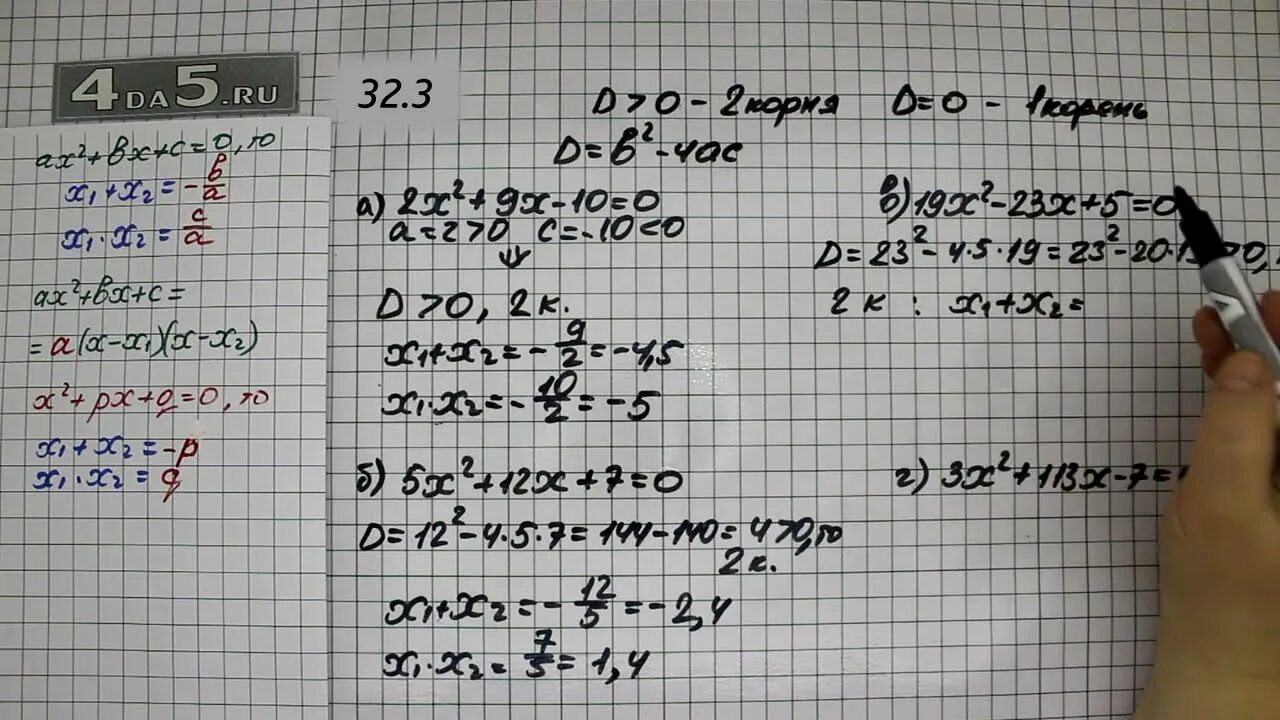 4DA5.RU
32.3
ax²+bx+c=0, то
x₁+x₂=-b/a
x₁·x₂=c/a
ax²+bx+c=
=a(x-x₁)(x-x₂)
x²+px+q=0, то
x₁+x₂=-p
x₁·x₂=q
D>0-2 корня D=0-1 корень
D=b²-4ac
а) 2x²+9x-10=0
a=2>0 c=-10<0
⇓
D>0, 2 к.
x₁+x₂=-9/2=-4,5
x₁·x₂=-10/2=-5
б) 5x²+12x+7=0
D=12²-4·5·7=144-140=4>0, то
2 к.
x₁+x₂=-12/5=-2,4
x₁·x₂=7/5=1,4
в) 19x²-23x+5=0
D=23²-4·5·19=23²-20·19>0,
2 к : x₁+x₂=
г) 3x²+113x-7=